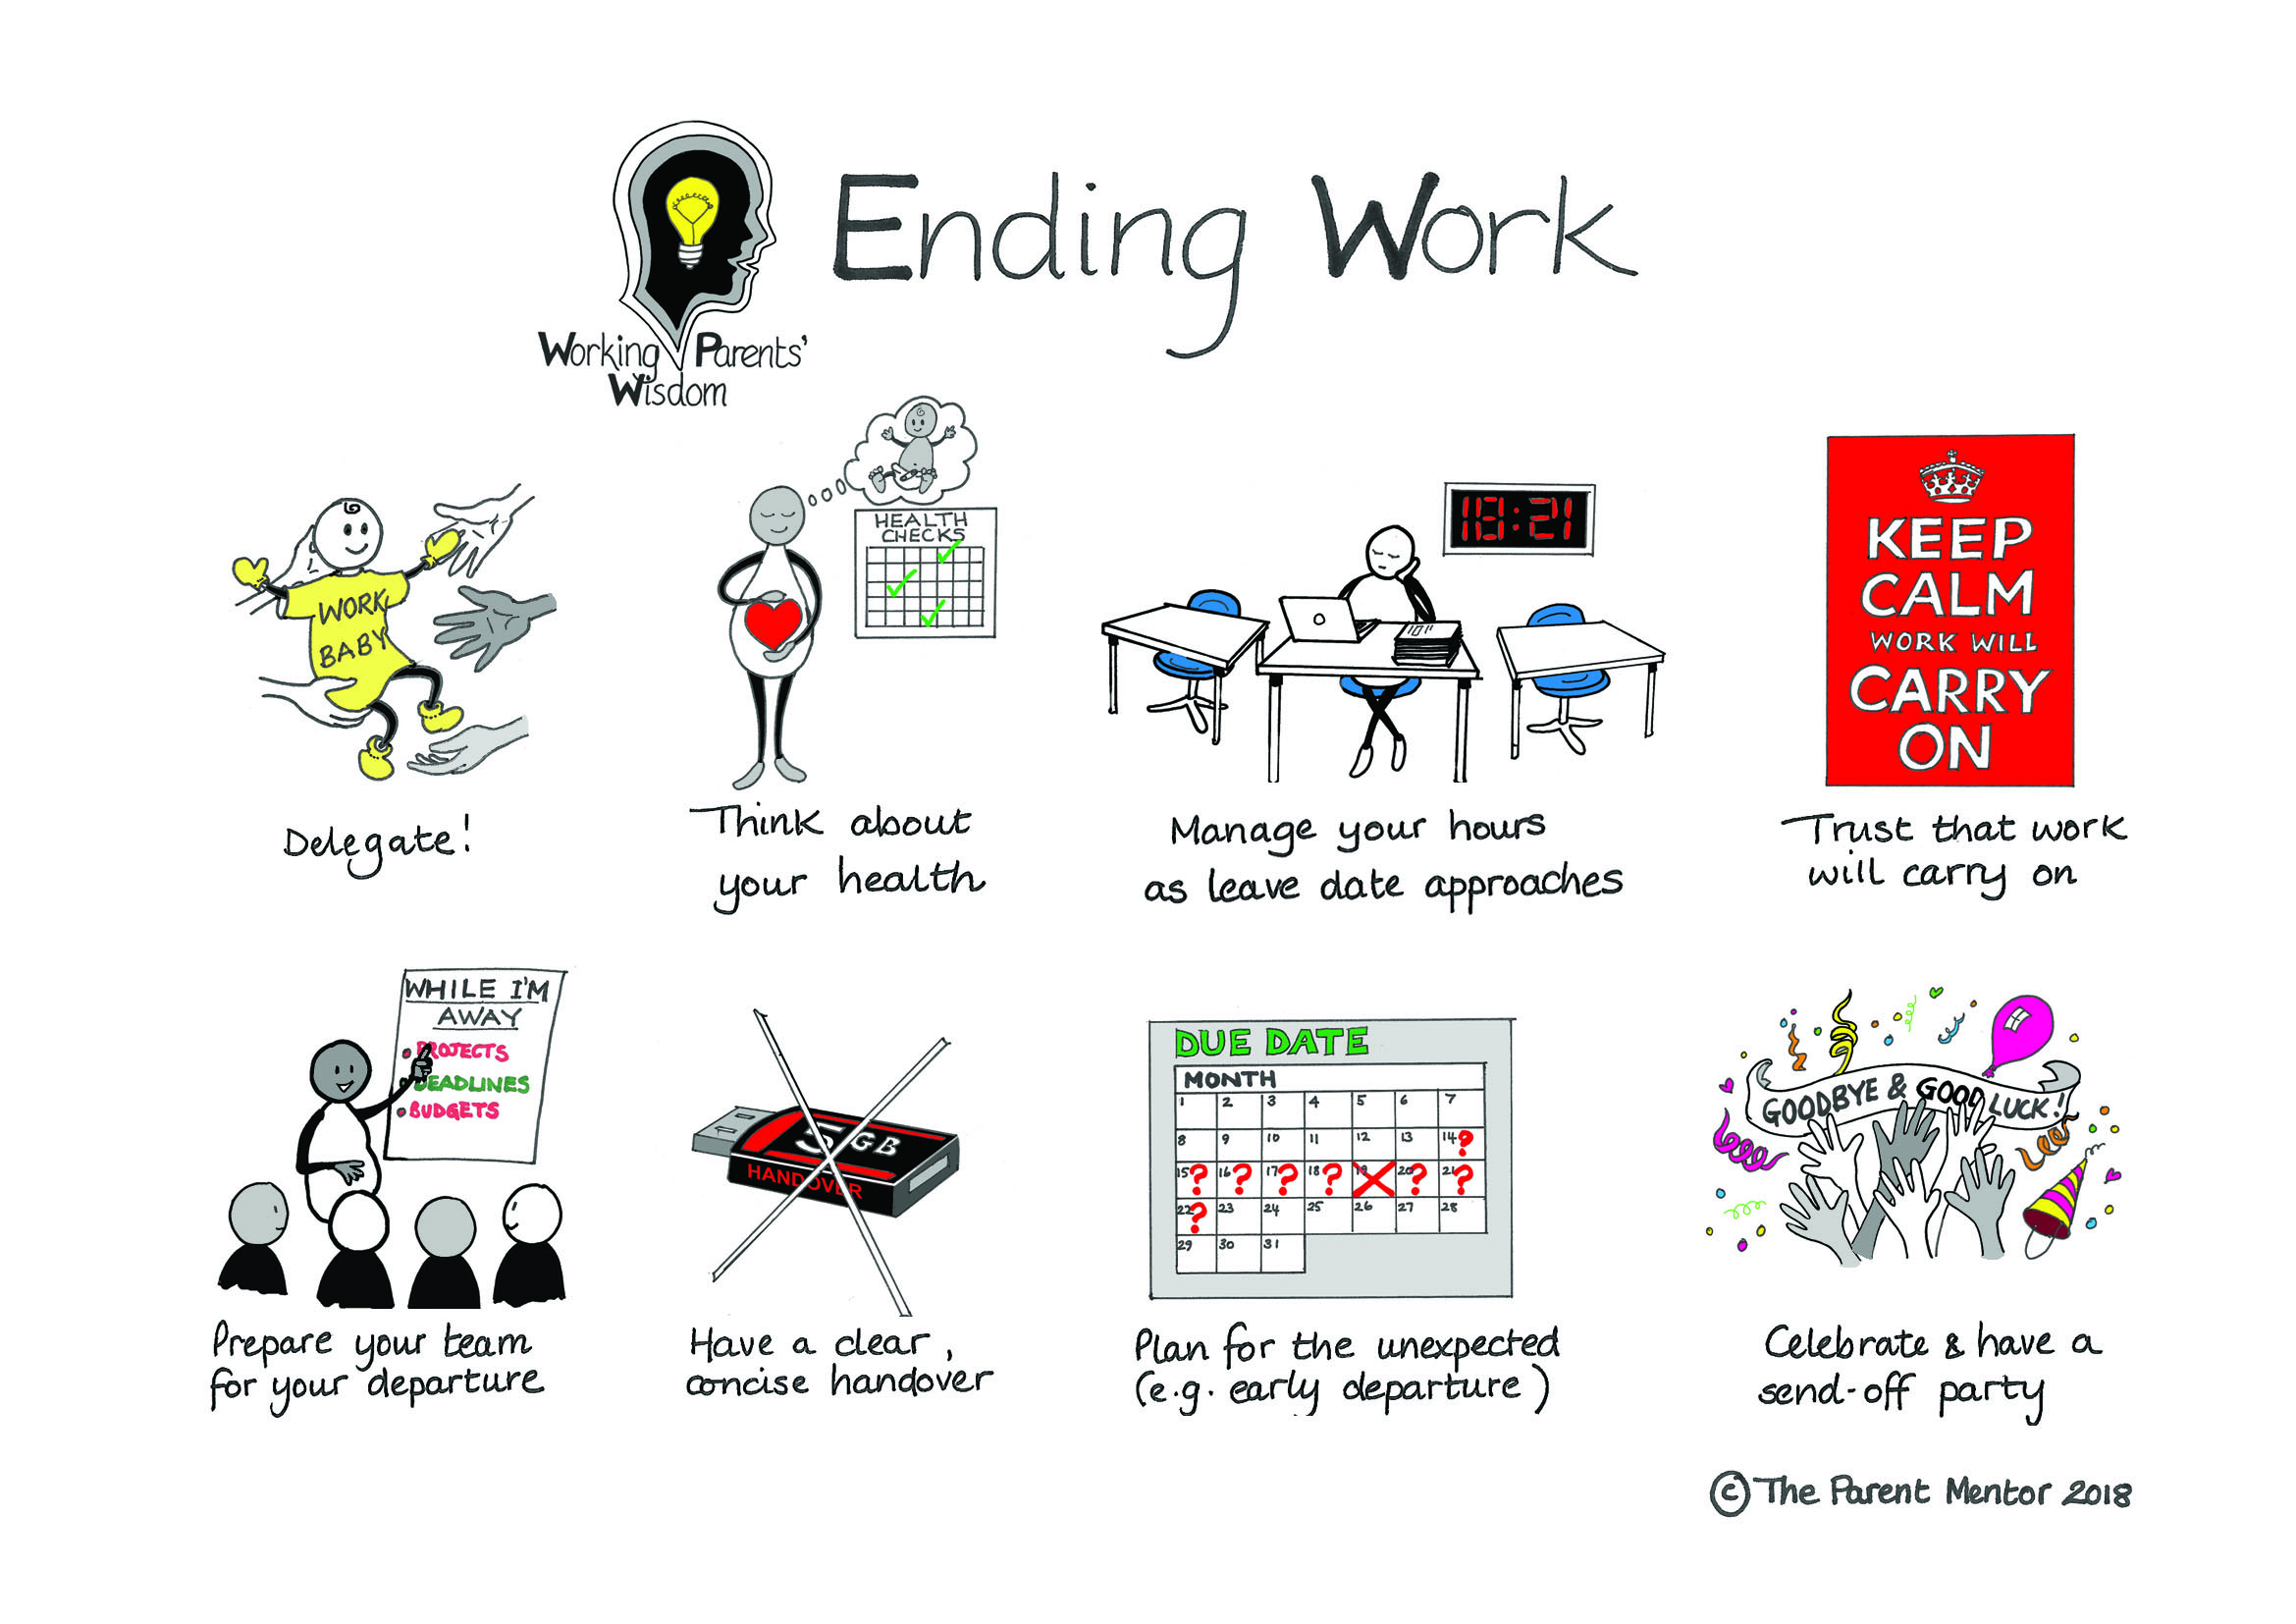 Ending Work
Working Parents'
Wisdom
WORK
BABY
Delegate!
HEALTH
CHECKS
Think about
your health
18:21
Manage your hours
as leave date approaches
KEEP
CALM
WORK WILL
CARRY
ON
Trust that work
will carry on
WHILE I'M
AWAY
• PROJECTS
• DEADLINES
• BUDGETS
Prepare your team
for your departure
5GB
HANDOVER
Have a clear,
concise handover
DUE DATE
MONTH
1 2 3 4 5 6 7
8 9 10 11 12 13 14?
15? 16? 17? 18? 19 20? 21?
22? 23 24 25 26 27 28
29 30 31
Plan for the unexpected
(e.g. early departure)
GOODBYE & GOOD LUCK!
Celebrate & have a
send-off party
© The Parent Mentor 2018